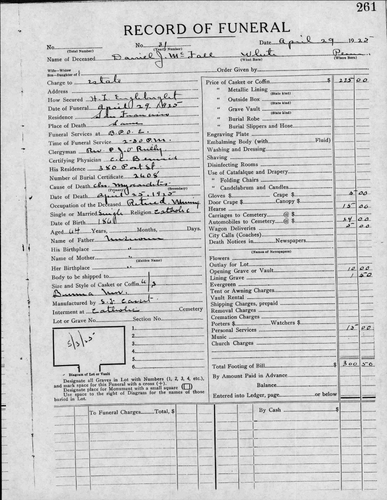 261
RECORD OF FUNERAL
No. 21 Date April 29 1925
(Total Number) (Yearly Number)
Name of Deceased Daniel J McFall White Penn.
Wife—Widow (What Race) (Where Born)
Son—Daughter of Order Given by
Charge to Estate
Address
How Secured H. L. Englebright
Date of Funeral April 29 1925
Residence San Francisco
Place of Death Same
Funeral Services at B.P.O.E.
Time of Funeral Service 2:30 P.M.
Clergyman Rev P. J. O'Reilly
Certifying Physician
His Residence 350 Post St
Number of Burial Certificate 2608
Cause of Death Chr. Myocarditis
Date of Death April 25, 1925
Occupation of the Deceased Retired Mining
Single or Married Single Religion Catholic
Date of Birth 1861
Aged 64 Years, Months, Days.
Name of Father Unknown
His Birthplace
Name of Mother
Her Birthplace
Body to be shipped to
Size and Style of Casket or Coffin 6/3
Manufactured by S.F. Casket
Interment at Catholic Cemetery
Lot or Grave No. Section No.
Diagram of Lot or Vault
Designate all Graves in Lot with Numbers (1, 2, 3, 4, etc.),
and mark space for this Funeral with a cross (+).
Designate place for Monument with a small square
Use space to the right of Diagram for the names of those
buried in Lot.
Price of Casket or Coffin $ 225 00
" Metallic Lining
(State kind)
" Outside Box
(State kind)
" Grave Vault
(State kind)
" Burial Robe
(State kind)
" Burial Slippers and Hose
Engraving Plate
Embalming Body (with Fluid)
Washing and Dressing
Shaving
Disinfecting Rooms
Use of Catafalque and Drapery
" Folding Chairs
" Candelabrum and Candles
Gloves $
Door Crape $ Canopy $
Hearse 15 00
Carriages to Cemetery @ $
Automobiles to Cemetery @ $
Wagon Deliveries
City Calls (Coaches)
Death Notices in Newspapers
(Names of Newspapers)
Flowers
Outlay for Lot
Opening Grave or Vault 10 00
Lining Grave
Evergreen
Tent or Awning Charges
Vault Rental
Shipping Charges, prepaid
Removal Charges
Cremation Charges
Porters $ Watchers $
Personal Services 15 00
Music
Church Charges
Total Footing of Bill $ 300 50
By Amount Paid in Advance
Balance
Entered into Ledger, page or below.
To Funeral Charges Total, $ By Cash $